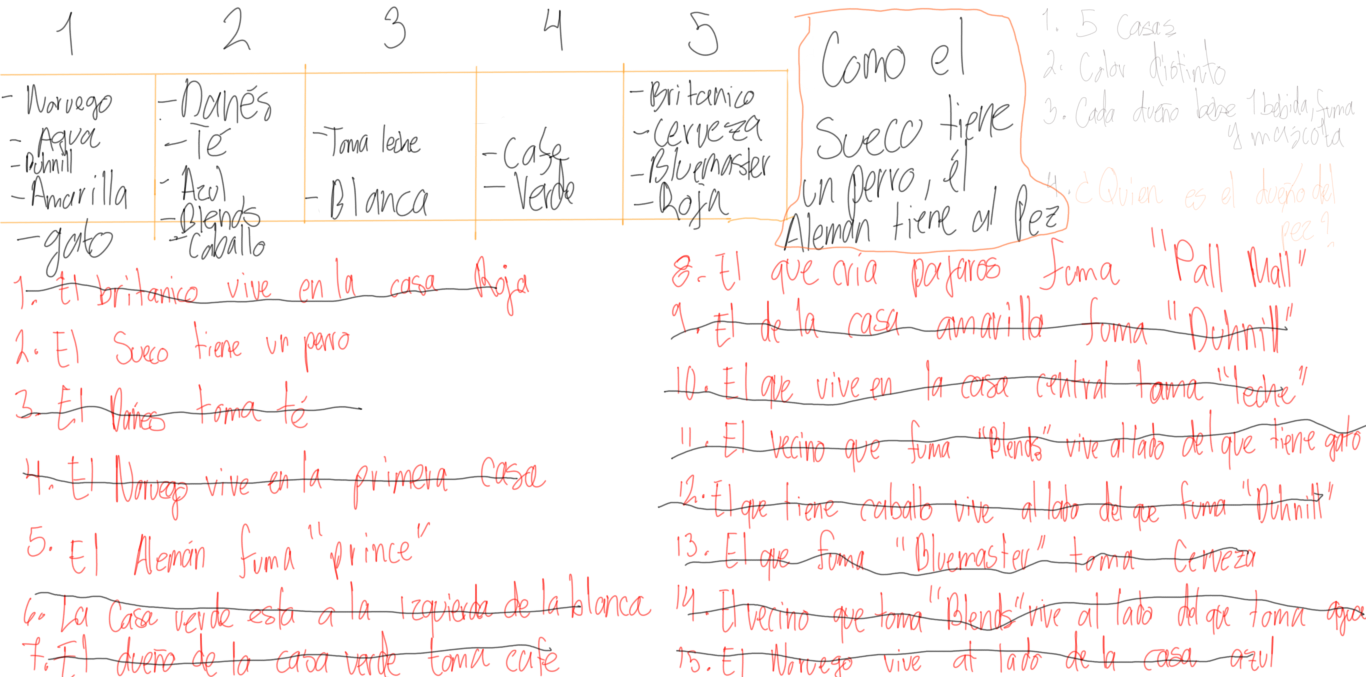 1 2 3 4 5
- Noruego
- Agua
- Duhnill
- Amarilla
- gato
- Danés
- Té
- Azul
- Blends
- Caballo
- Toma leche
- Blanca
- Cafe
- Verde
- Britanico
- Cerveza
- Bluemaster
- Roja
Como el
Sueco tiene
un perro, él
Alemán tiene al Pez
1. 5 Casas
2. Color distinto
3. Cada dueño bebe 1 bebida, fuma
y mascota
4. ¿Quien es el dueño del
pez?
1. El britanico vive en la casa Roja
2. El Sueco tiene un perro
3. El Danes toma té
4. El Noruego vive en la primera casa
5. El Alemán fuma "prince"
6. La Casa verde esta a la izquierda de la blanca
7. El dueño de la casa verde toma café
8. El que cria pajaros fuma "Pall Mall"
9. El de la casa amarilla fuma "Duhnill"
10. El que vive en la casa central toma "leche"
11. El vecino que fuma "Blends" vive al lado del que tiene gato
12. El que tiene caballo vive al lado del que fuma "Duhnill"
13. El que fuma "Bluemaster" toma Cerveza
14. El vecino que toma "Blends" vive al lado del que toma agua
15. El Noruego vive al lado de la casa azul